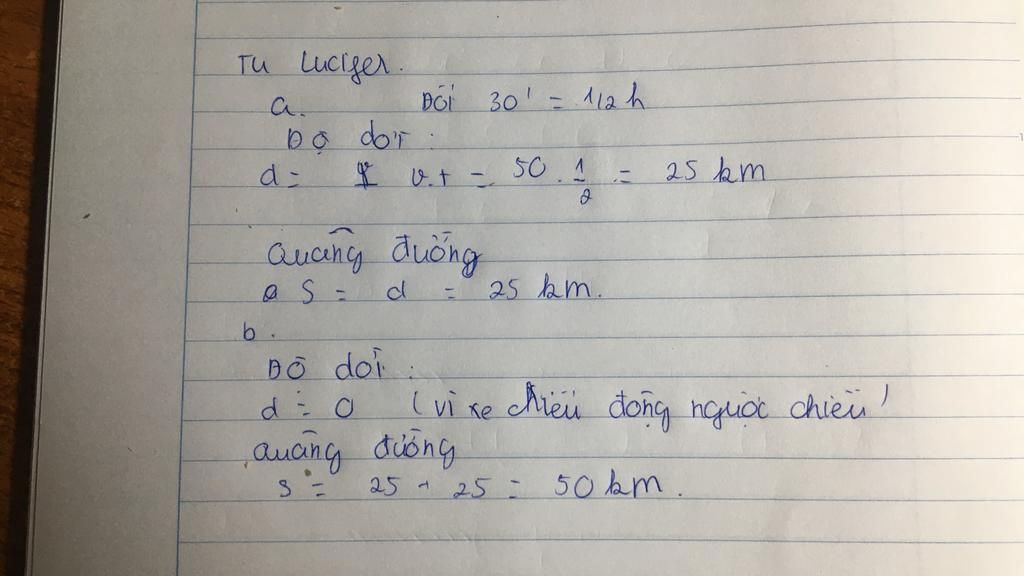 TU Luciger.
a. Đổi 30' = 1/2 h
Độ dời :
d = v.t = 50 . 1/2 = 25 km
Quãng đường
S = d = 25 km.
b.
Độ dời :
d = 0 (vì xe chiếu động ngược chiều)
Quãng đường
S = 25 + 25 = 50 km.